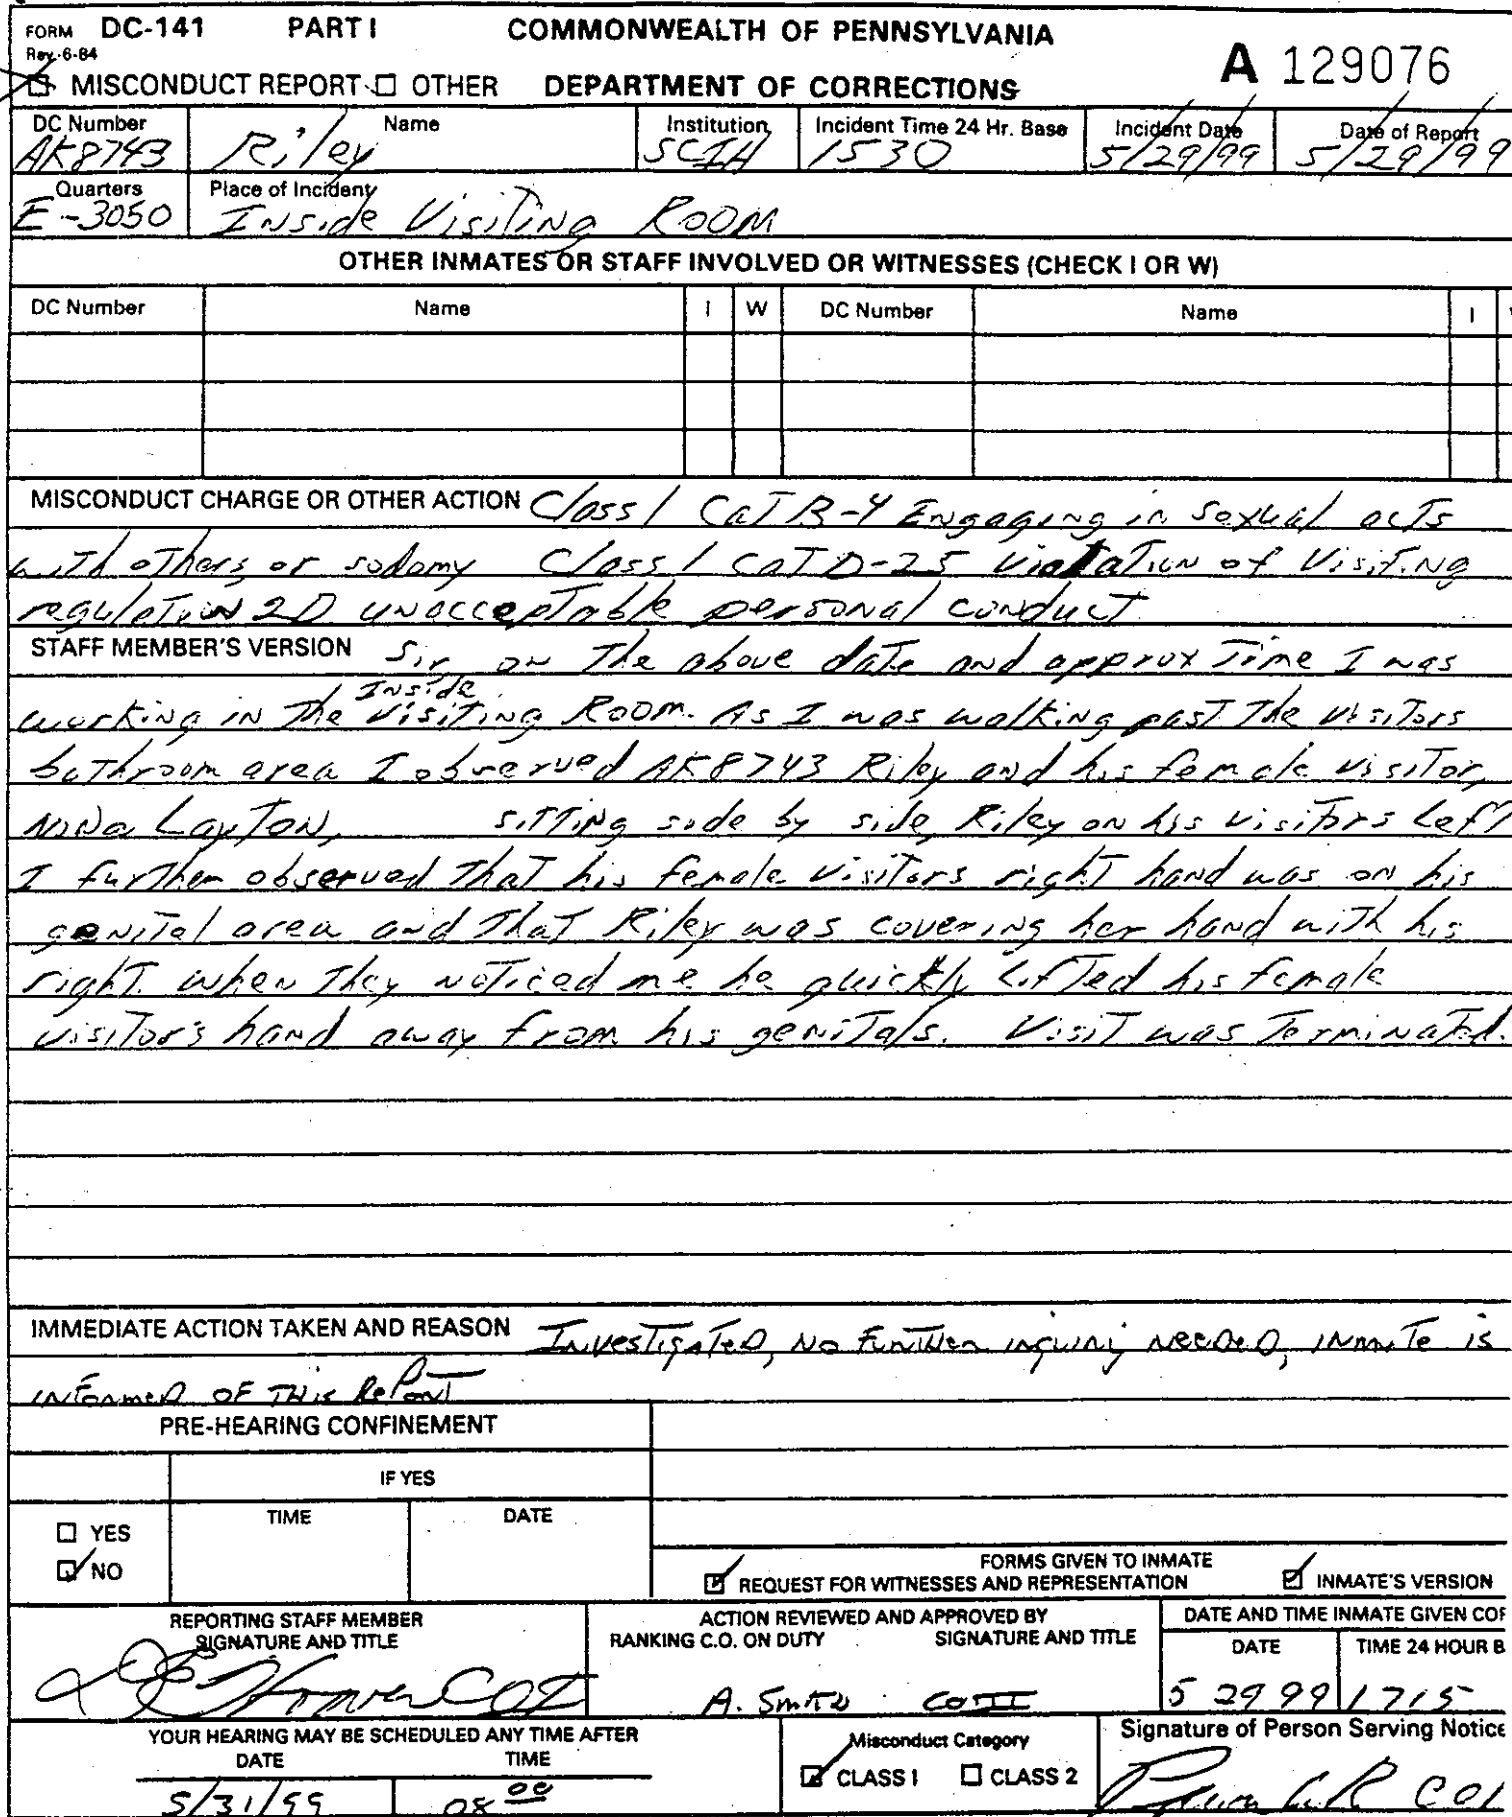 FORM DC-141 PART I COMMONWEALTH OF PENNSYLVANIA
Rev. 6-84
A 129076
MISCONDUCT REPORT OTHER DEPARTMENT OF CORRECTIONS
DC Number Name Institution Incident Time 24 Hr. Base Incident Date Date of Report
AK8743 Riley SCIH 1530 5/29/99 5/29/99
Quarters Place of Incident
E-3050 Inside Visiting Room
OTHER INMATES OR STAFF INVOLVED OR WITNESSES (CHECK I OR W)
DC Number Name I W DC Number Name I
MISCONDUCT CHARGE OR OTHER ACTION Class 1 Cat B-4 Engaging in sexual acts
with others, or sodomy Class 1 Cat D-25 Violation of Visiting
regulation 2D unacceptable personal conduct
STAFF MEMBER'S VERSION Sir, on the above date and approx time I was
working in the Inside Visiting Room. As I was walking past the visitors
bathroom area I observed AK8743 Riley and his female visitor,
Nina Layton, sitting side by side, Riley on his visitors left
I further observed that his female visitors right hand was on his
genital area and that Riley was covering her hand with his
right. when they noticed me he quickly lifted his female
visitor's hand away from his genitals. Visit was terminated.
IMMEDIATE ACTION TAKEN AND REASON Investigated, no further inquiry needed, inmate is
informed of this report
PRE-HEARING CONFINEMENT
IF YES
TIME DATE
YES
NO
FORMS GIVEN TO INMATE
REQUEST FOR WITNESSES AND REPRESENTATION INMATE'S VERSION
REPORTING STAFF MEMBER
SIGNATURE AND TITLE
COI
ACTION REVIEWED AND APPROVED BY
RANKING C.O. ON DUTY SIGNATURE AND TITLE
A. Smith COIII
DATE AND TIME INMATE GIVEN COP
DATE TIME 24 HOUR B
5 29 99 1715
YOUR HEARING MAY BE SCHEDULED ANY TIME AFTER
DATE TIME
5/31/99 0800
Misconduct Category
CLASS 1 CLASS 2
Signature of Person Serving Notice
COI